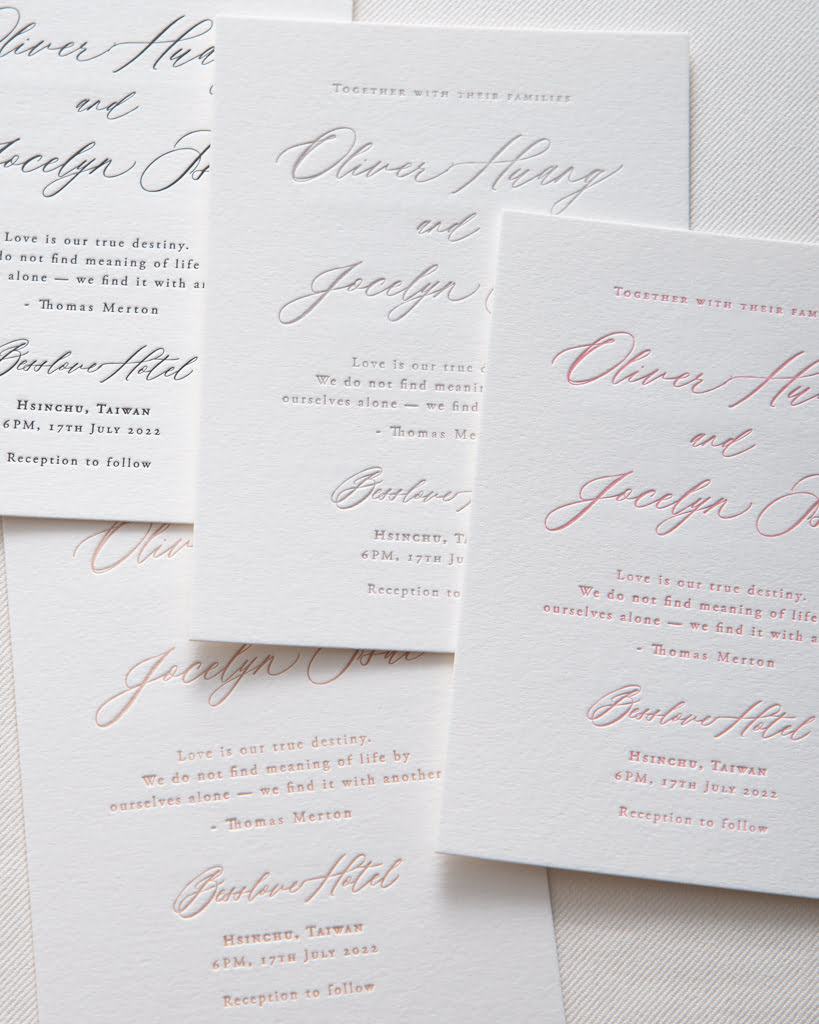 Oliver
and
Jocelyn
Love is our true destiny.
do not find meaning of life
alone — we find it with
- Thomas Merton
Besslove Hotel
Hsinchu, Taiwan
6PM, 17th July 2022
Reception to follow
Together with their families
Oliver Huang
and
Jocelyn
Love is our true
We do not find
ourselves alone — we find
- Thomas
Besslove
Hsinchu,
6PM, 17th
Reception to
Together with their
Oliver
and
Jocelyn
Love is our true destiny.
We do not find meaning of life
ourselves alone — we find it with
- Thomas Merton
Besslove Hotel
Hsinchu, Taiwan
6PM, 17th July 2022
Reception to follow
Jocelyn
Love is our true destiny.
We do not find meaning of life by
ourselves alone — we find it with another
- Thomas Merton
Besslove Hotel
Hsinchu, Taiwan
6PM, 17th July 2022
Reception to follow